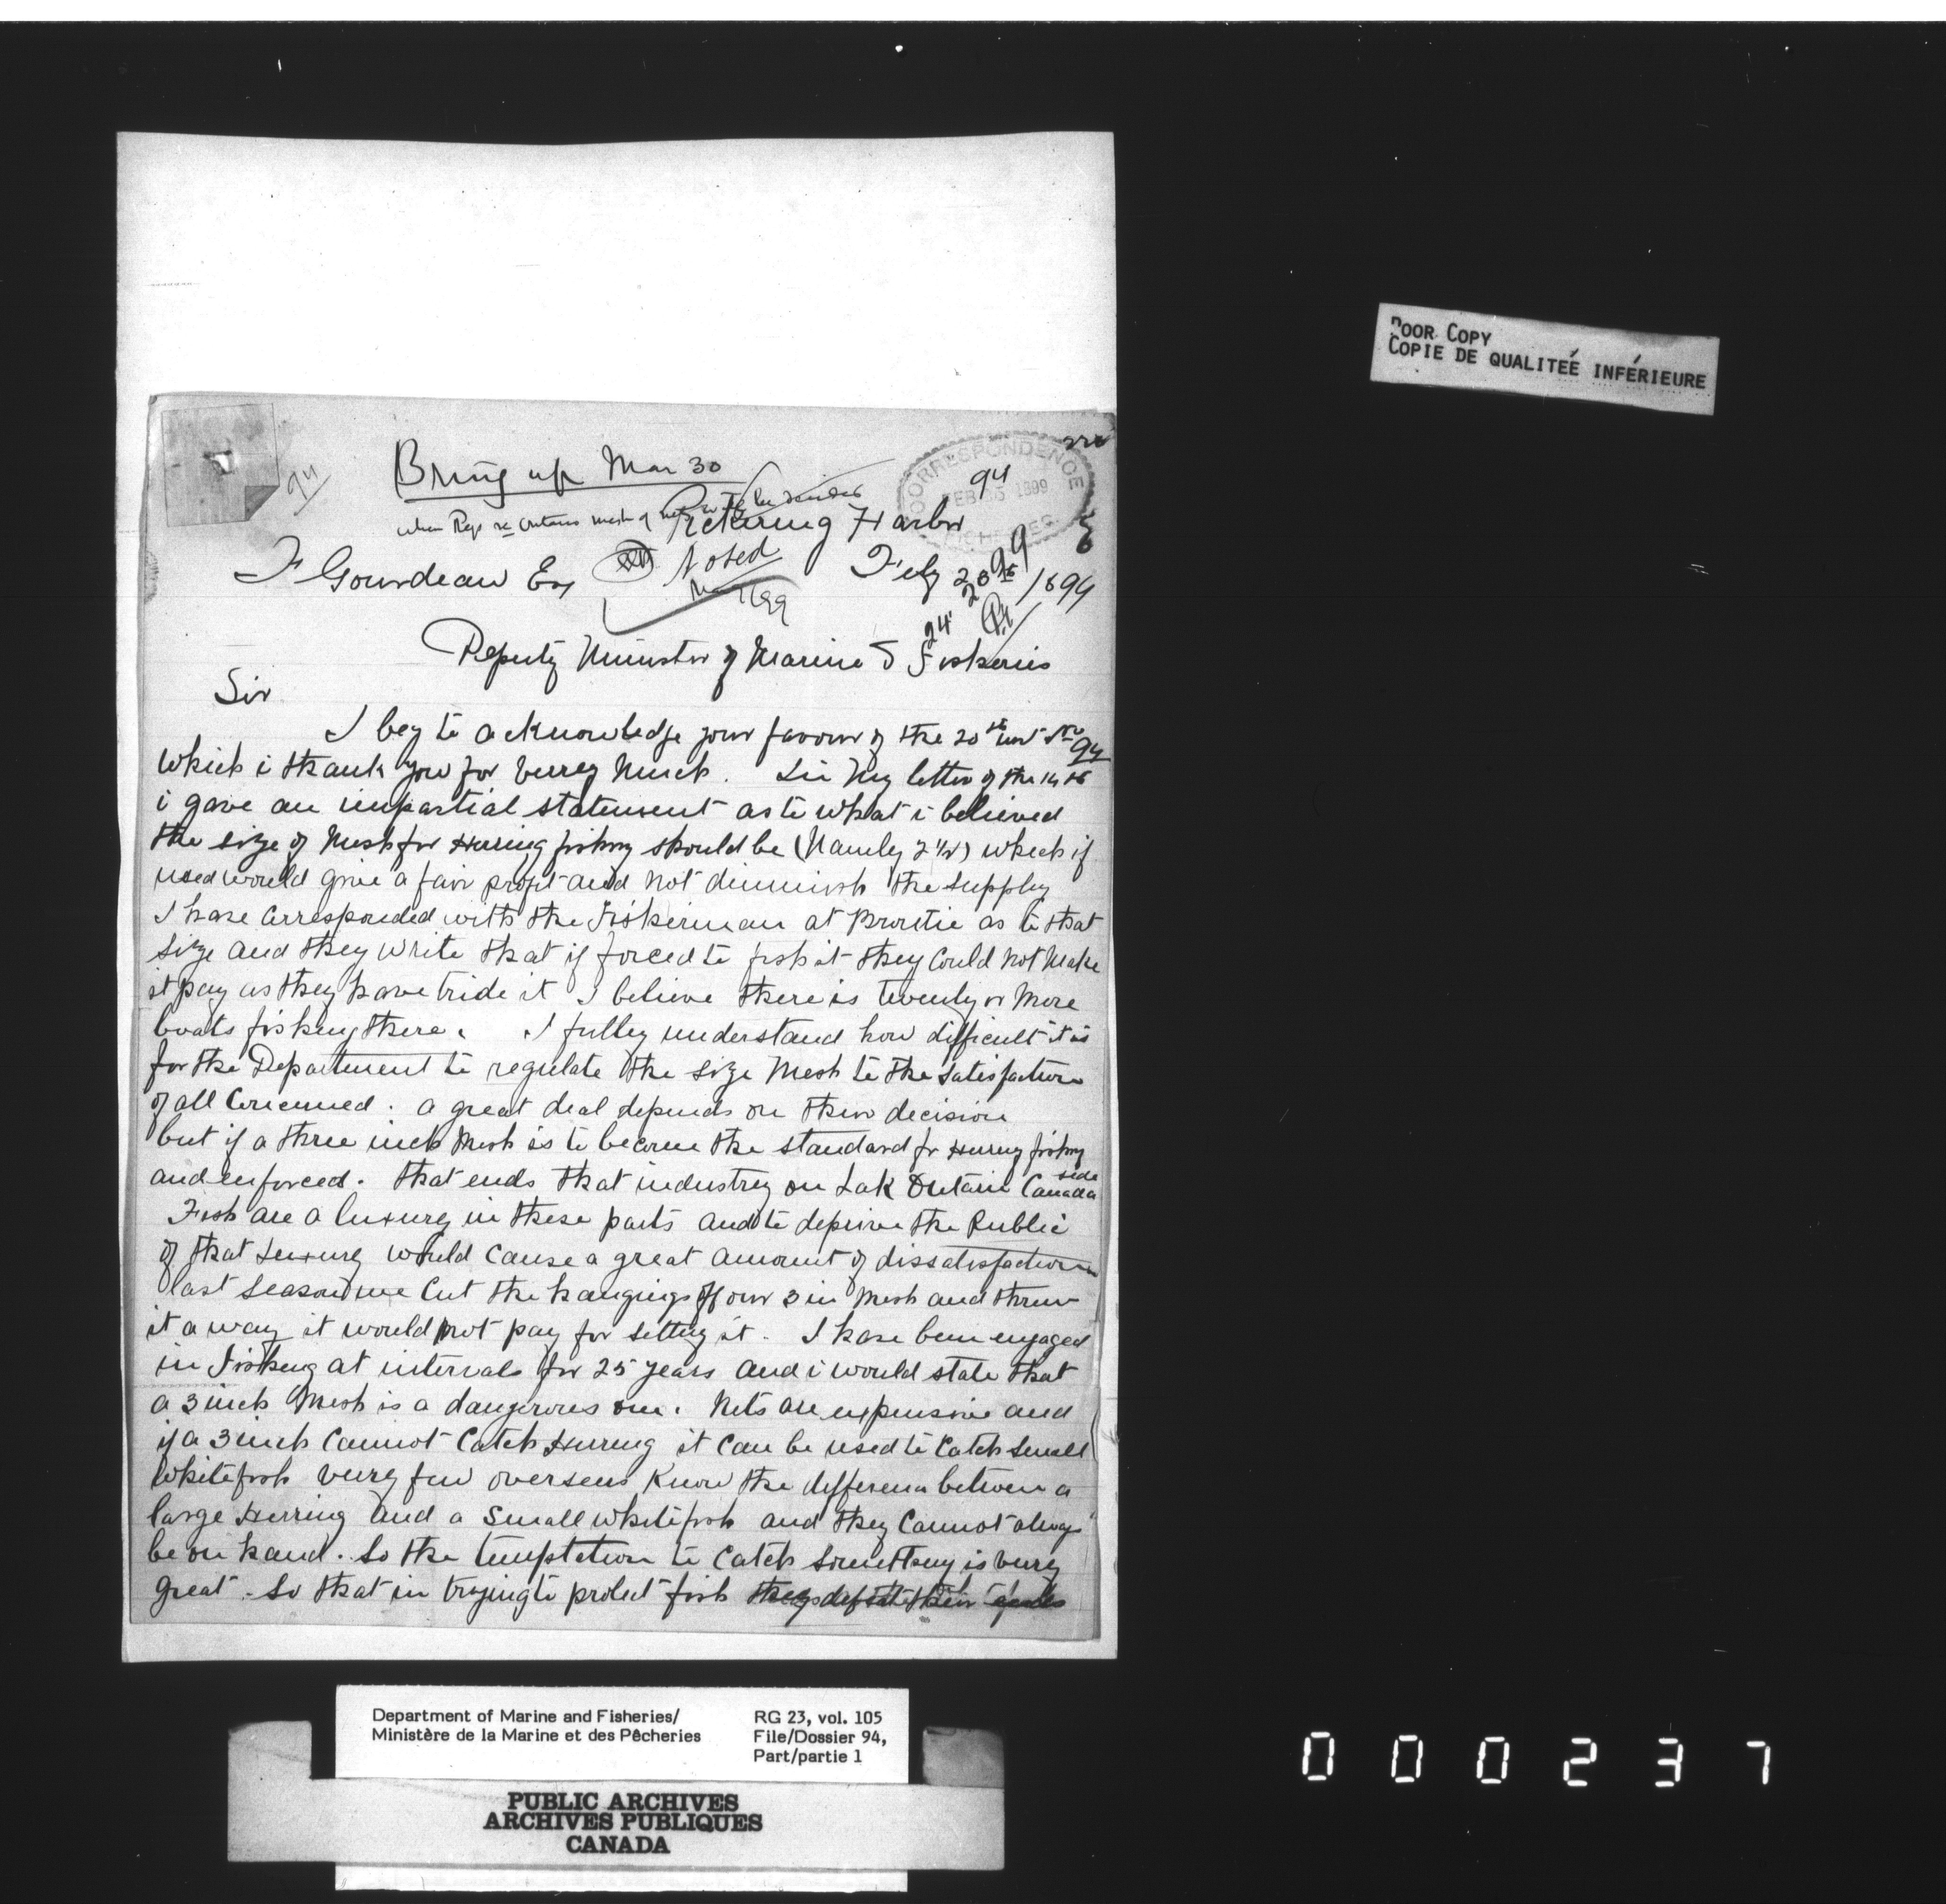 POOR COPY
COPIE DE QUALITEÉ INFÉRIEURE
94
Bring up Mar 30
CORRESPONDENCE
FEB 1899
94
Pickering Harbor
F Gourdeau Esq
Noted
Feby 28th 1899
24
Deputy Minister of Marine & Fisheries
Sir
I beg to acknowledge your favour of the 20th inst No 94
which i thank you for verrey much. In My letter of the 14th
i gave an impartial statement as to what i believed
the size of Mesh for Herring fishing should be (Namely 2 1/2) which if
used would give a fair profit and not diminish the supply
I have corresponded with the Fisherman at Brontie as to that
size and they write that if forced to fish it they could not make
it pay as they have tride it I believe there is twenty or more
boats fishing there. I fulley understand how difficult it is
for the Department to regulate the size Mesh to the satisfaction
of all concerned. a great deal depends on their decision
but if a three inch mesh is to become the standard for Herring fishing
and enforced. that ends that industrey on Lak Ontario Canada side
Fish are a luxurey in these parts and to deprive the Public
of that luxurey would cause a great amount of dissatisfaction
last season we cut the hangings off our 3 in mesh and threw
it a way it would not pay for setting it. I have been engaged
in Fishing at intervals for 25 years and i would state that
a 3 inch Mesh is a dangerous one. Nets are expensive and
if a 3 inch cannot catch Herring it can be used to catch small
whitefish verry few overseers know the difference between a
large Herring and a small whitefish and they cannot always
be on hand. So the temptation to catch something is verry
great. So that in trying to protect fish they defeat their ends
Department of Marine and Fisheries/
Ministère de la Marine et des Pêcheries
RG 23, vol. 105
File/Dossier 94,
Part/partie 1
PUBLIC ARCHIVES
ARCHIVES PUBLIQUES
CANADA
000237